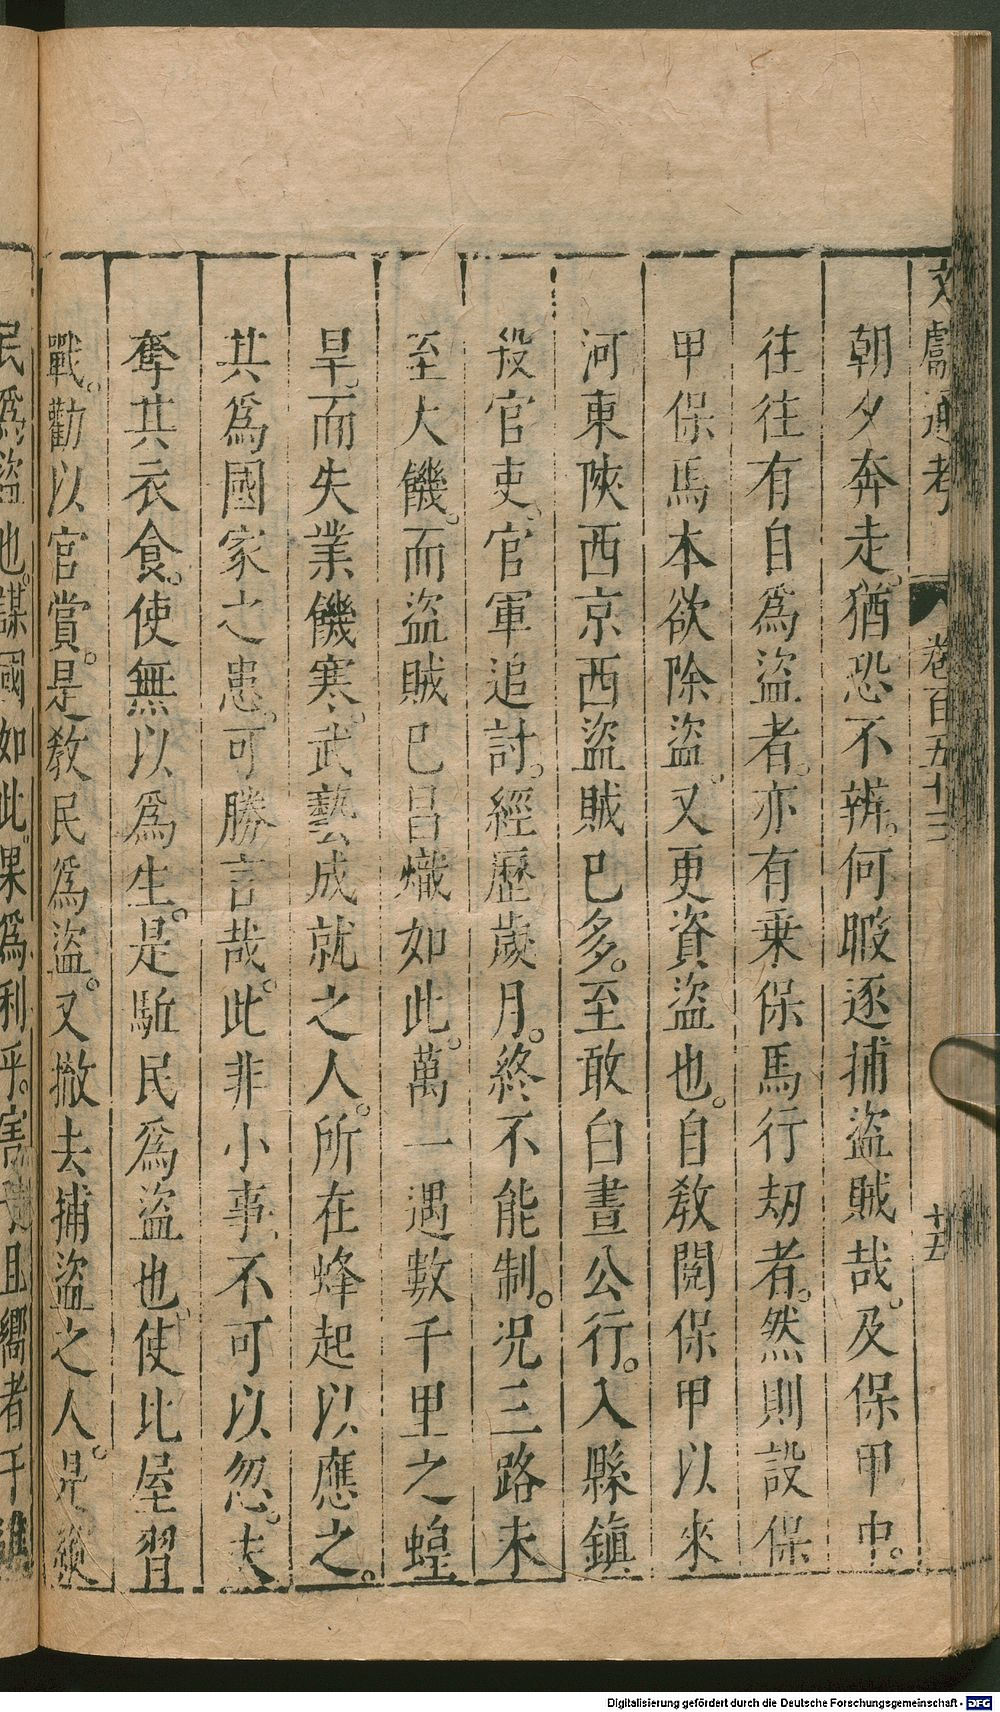 文獻通考 卷百五十三 十五
朝夕奔走。猶恐不辨。何暇逐捕盜賊哉。及保甲中。
往往有自爲盜者。亦有乗保馬行刼者。然則設保
甲保馬本欲除盜。又更資盜也。自敎閱保甲以來
河東陝西京西盜賊已多。至敢白晝公行。入縣鎮
殺官吏。官軍追討。經歷歲月。終不能制。况三路未
至大饑。而盜賊已昌熾如此。萬一遇數千里之蝗
旱。而失業饑寒。武藝成就之人。所在蜂起以應之。
其爲國家之患。可勝言哉。此非小事。不可以忽。夫
奪其衣食。使無以爲生。是驅民爲盜也。使比屋習
戰。勸以官賞。是敎民爲盜。又撤去捕盜之人。是縱
民爲盜也。謀國如此。果爲利乎。害乎。且嚮者干進